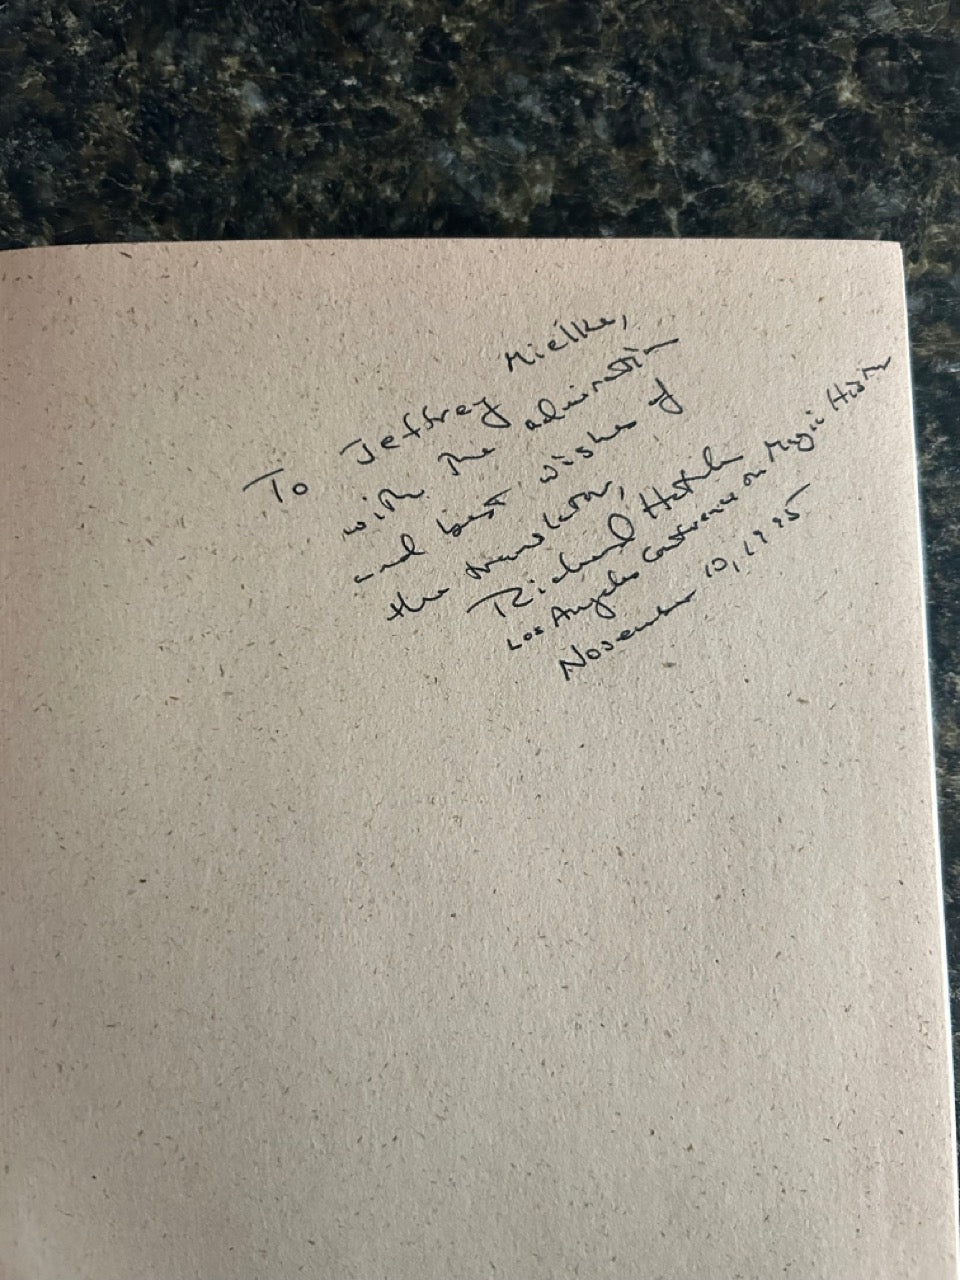 To Jeffrey Mielke,
with the admiration
and best wishes of
the translator,
Richard Hatch
Los Angeles Conference on Magic History
November 10, 1995